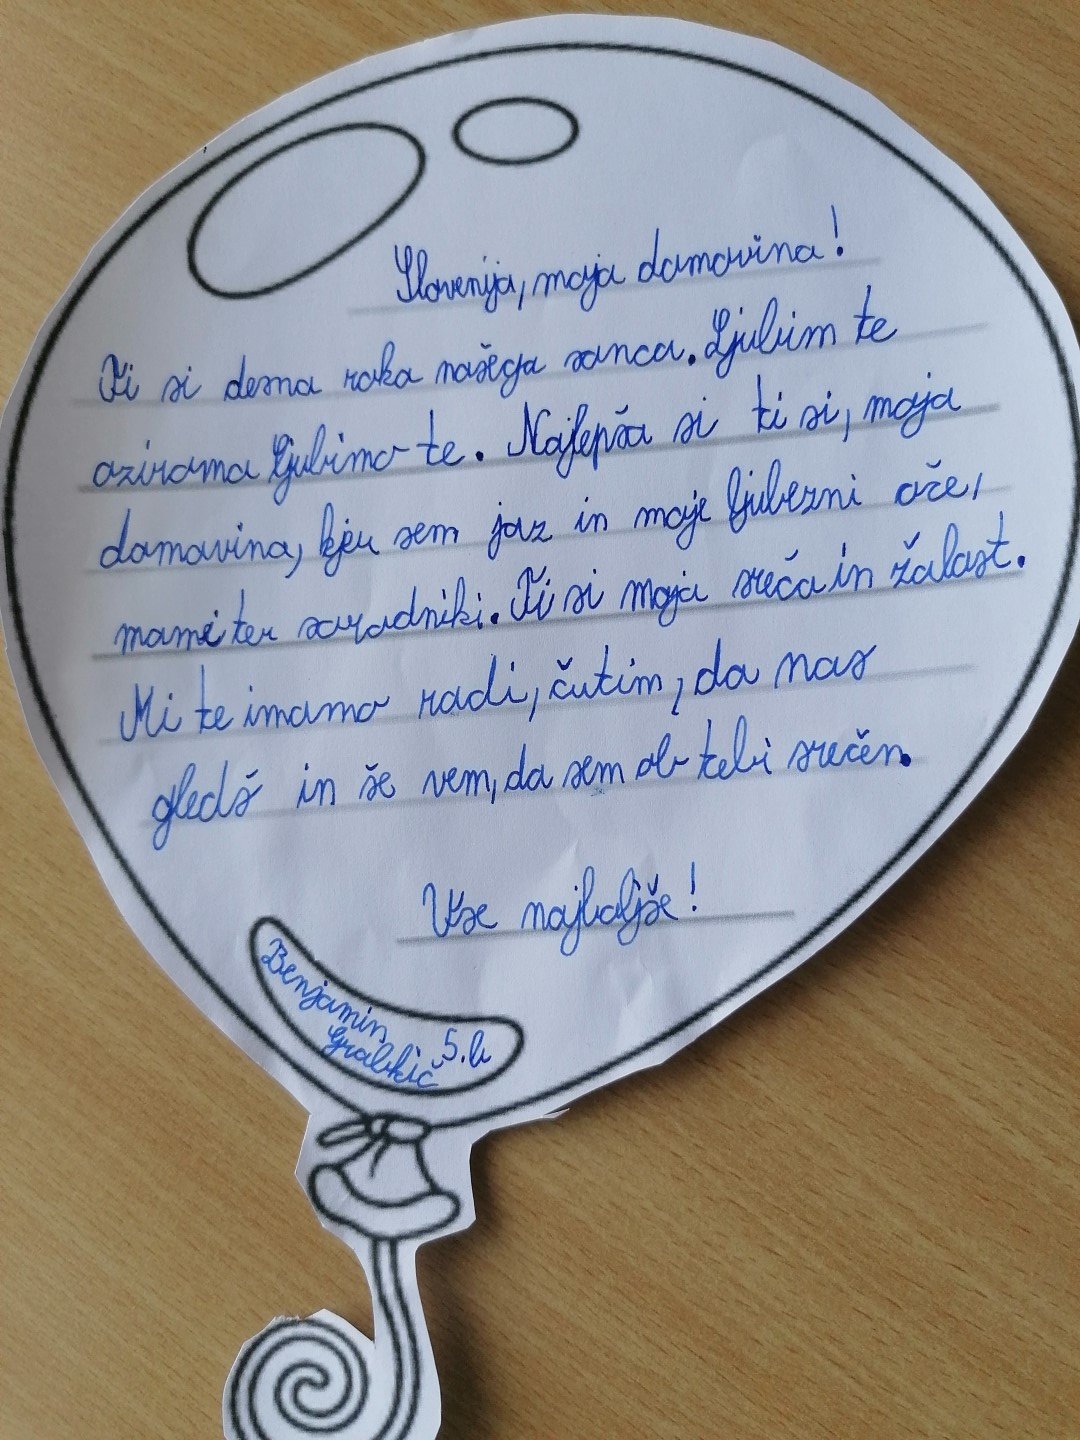 Slovenija, moja domovina!
Ti si desna roka našega sonca. Ljubim te
oziroma ljubimo te. Najlepša si ti si, moja
domovina, kjer sem jaz in moje ljubezni oče,
mami ter sorodniki. Ti si moja sreča in žalost.
Mi te imamo radi, čutim, da nas
gledš in še vem, da sem ob tebi srečen.
Vse najboljše!
Benjamin
Grabkič 5.b